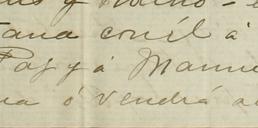 y
tana con él á
Paz y á Manue
na ó vendrá a